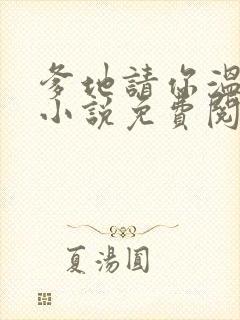 爹地請你溫
小說免費閱
夏湯圓